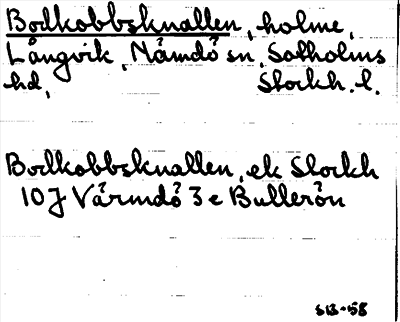 Bodkobbsknallen, holme,
Långvik, Nämdö sn, Sotholms
hd, Stockh. l.
Bodkobbsknallen, ek Stockh
10J Värmdö 3 e Bullerön
S13-58